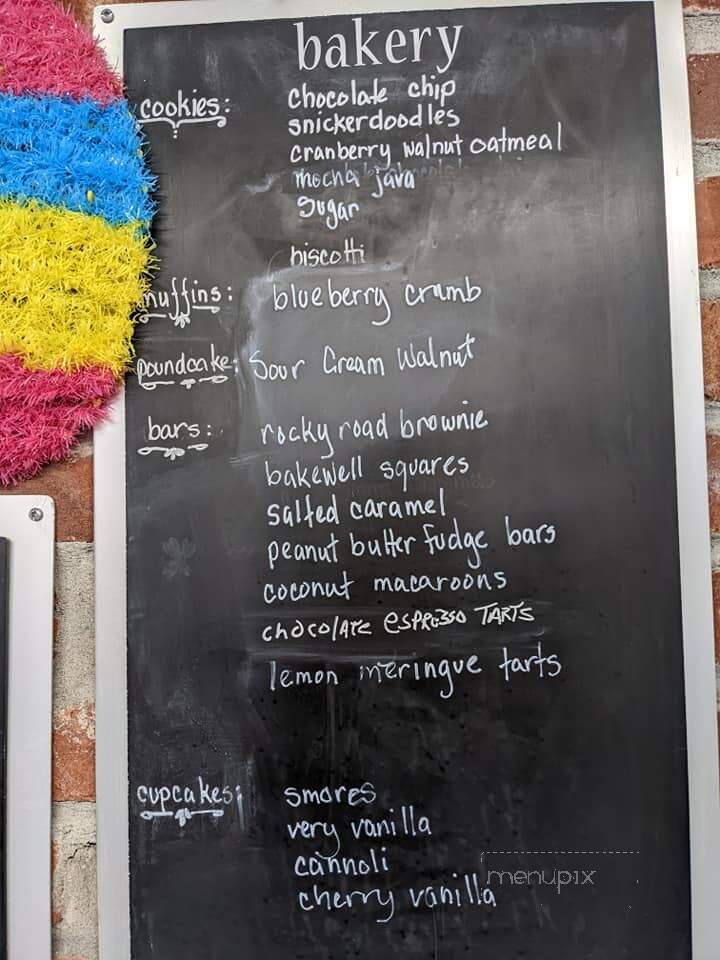 bakery
cookies: chocolate chip
snickerdoodles
cranberry walnut oatmeal
mocha java
Sugar
biscotti
muffins: blueberry crumb
poundcake: Sour Cream Walnut
bars: rocky road brownie
bakewell squares
salted caramel
peanut butter fudge bars
coconut macaroons
chocolATE ESPRESSO TARTS
lemon meringue tarts
cupcakes: smores
very vanilla
cannoli
cherry vanilla
menupix